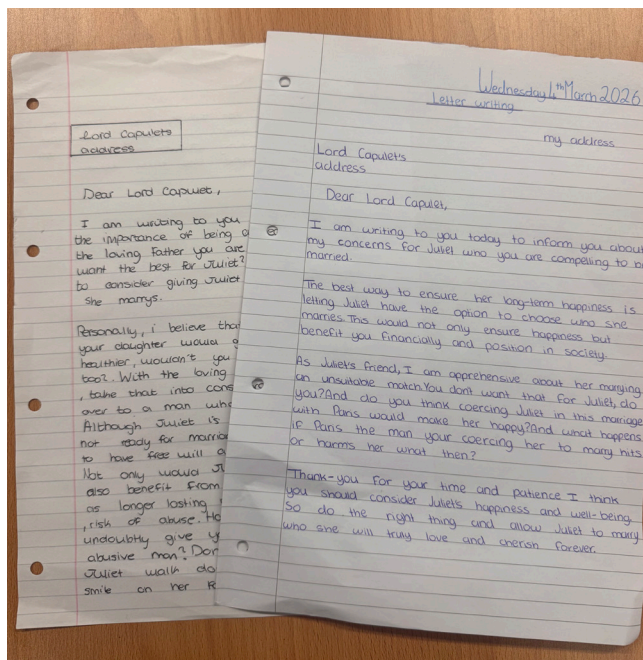 Lord Capulets
address
Dear Lord Capulet,
I am writing to you
the importance of being a
the loving father you are
want the best for Juliet?
to consider giving Juliet
she marrys.
Personally, i believe that
your daughter would
healthier, wouldn't you
too?. With the loving
, take that into cons
over to a man who
Although Juliet is
not ready for marria
to have free will a
Not only would Ju
also benefit from
as longer lasting
, risk of abuse. Ho
undoubtly give y
abusive man? Don
Juliet walk do
smile on her
Wednesday 4th March 2026
Letter writing
my address
Lord Capulet's
address
Dear Lord Capulet,
I am writing to you today to inform you about
my concerns for Juliet who you are compelling to be
married.
The best way to ensure her long-term happiness is
letting Juliet have the option to choose who she
marries. This would not only ensure happiness but
benefit you financially and position in society.
As Juliet's friend, I am apprehensive about her marrying
an unsuitable match. You don't want that for Juliet, do
you? And do you think coercing Juliet in this marriage
with Paris would make her happy? And what happens
if Paris the man your coercing her to marry hits
or harms her what then?
Thank-you for your time and patience I think
you should consider Juliet's happiness and well-being
So do the right thing and allow Juliet to marry
who she will truly love and cherish forever.